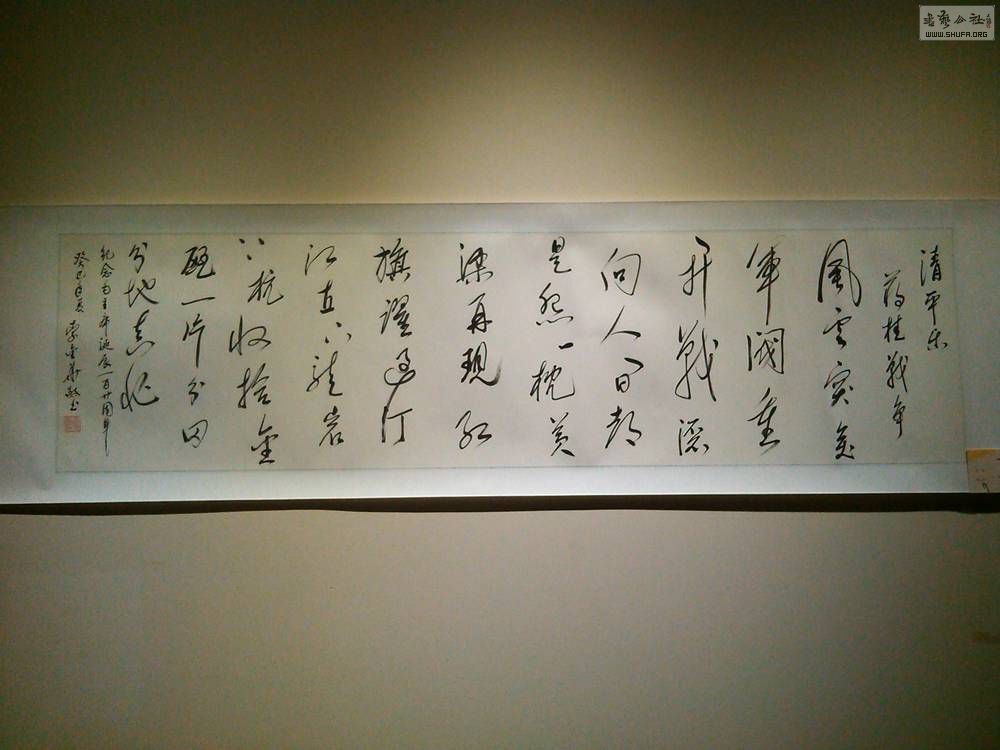 清平乐
蒋桂战争
风云突变
军阀重
开战洒
向人间都
是怨一枕黄
粱再现红
旗跃过汀
江直下龙岩
上杭收拾金
瓯一片分田
分地真忙
纪念毛主席诞辰一百廿周年
癸巳年夏李金华敬书
书艺公社
WWW.SHUFA.ORG